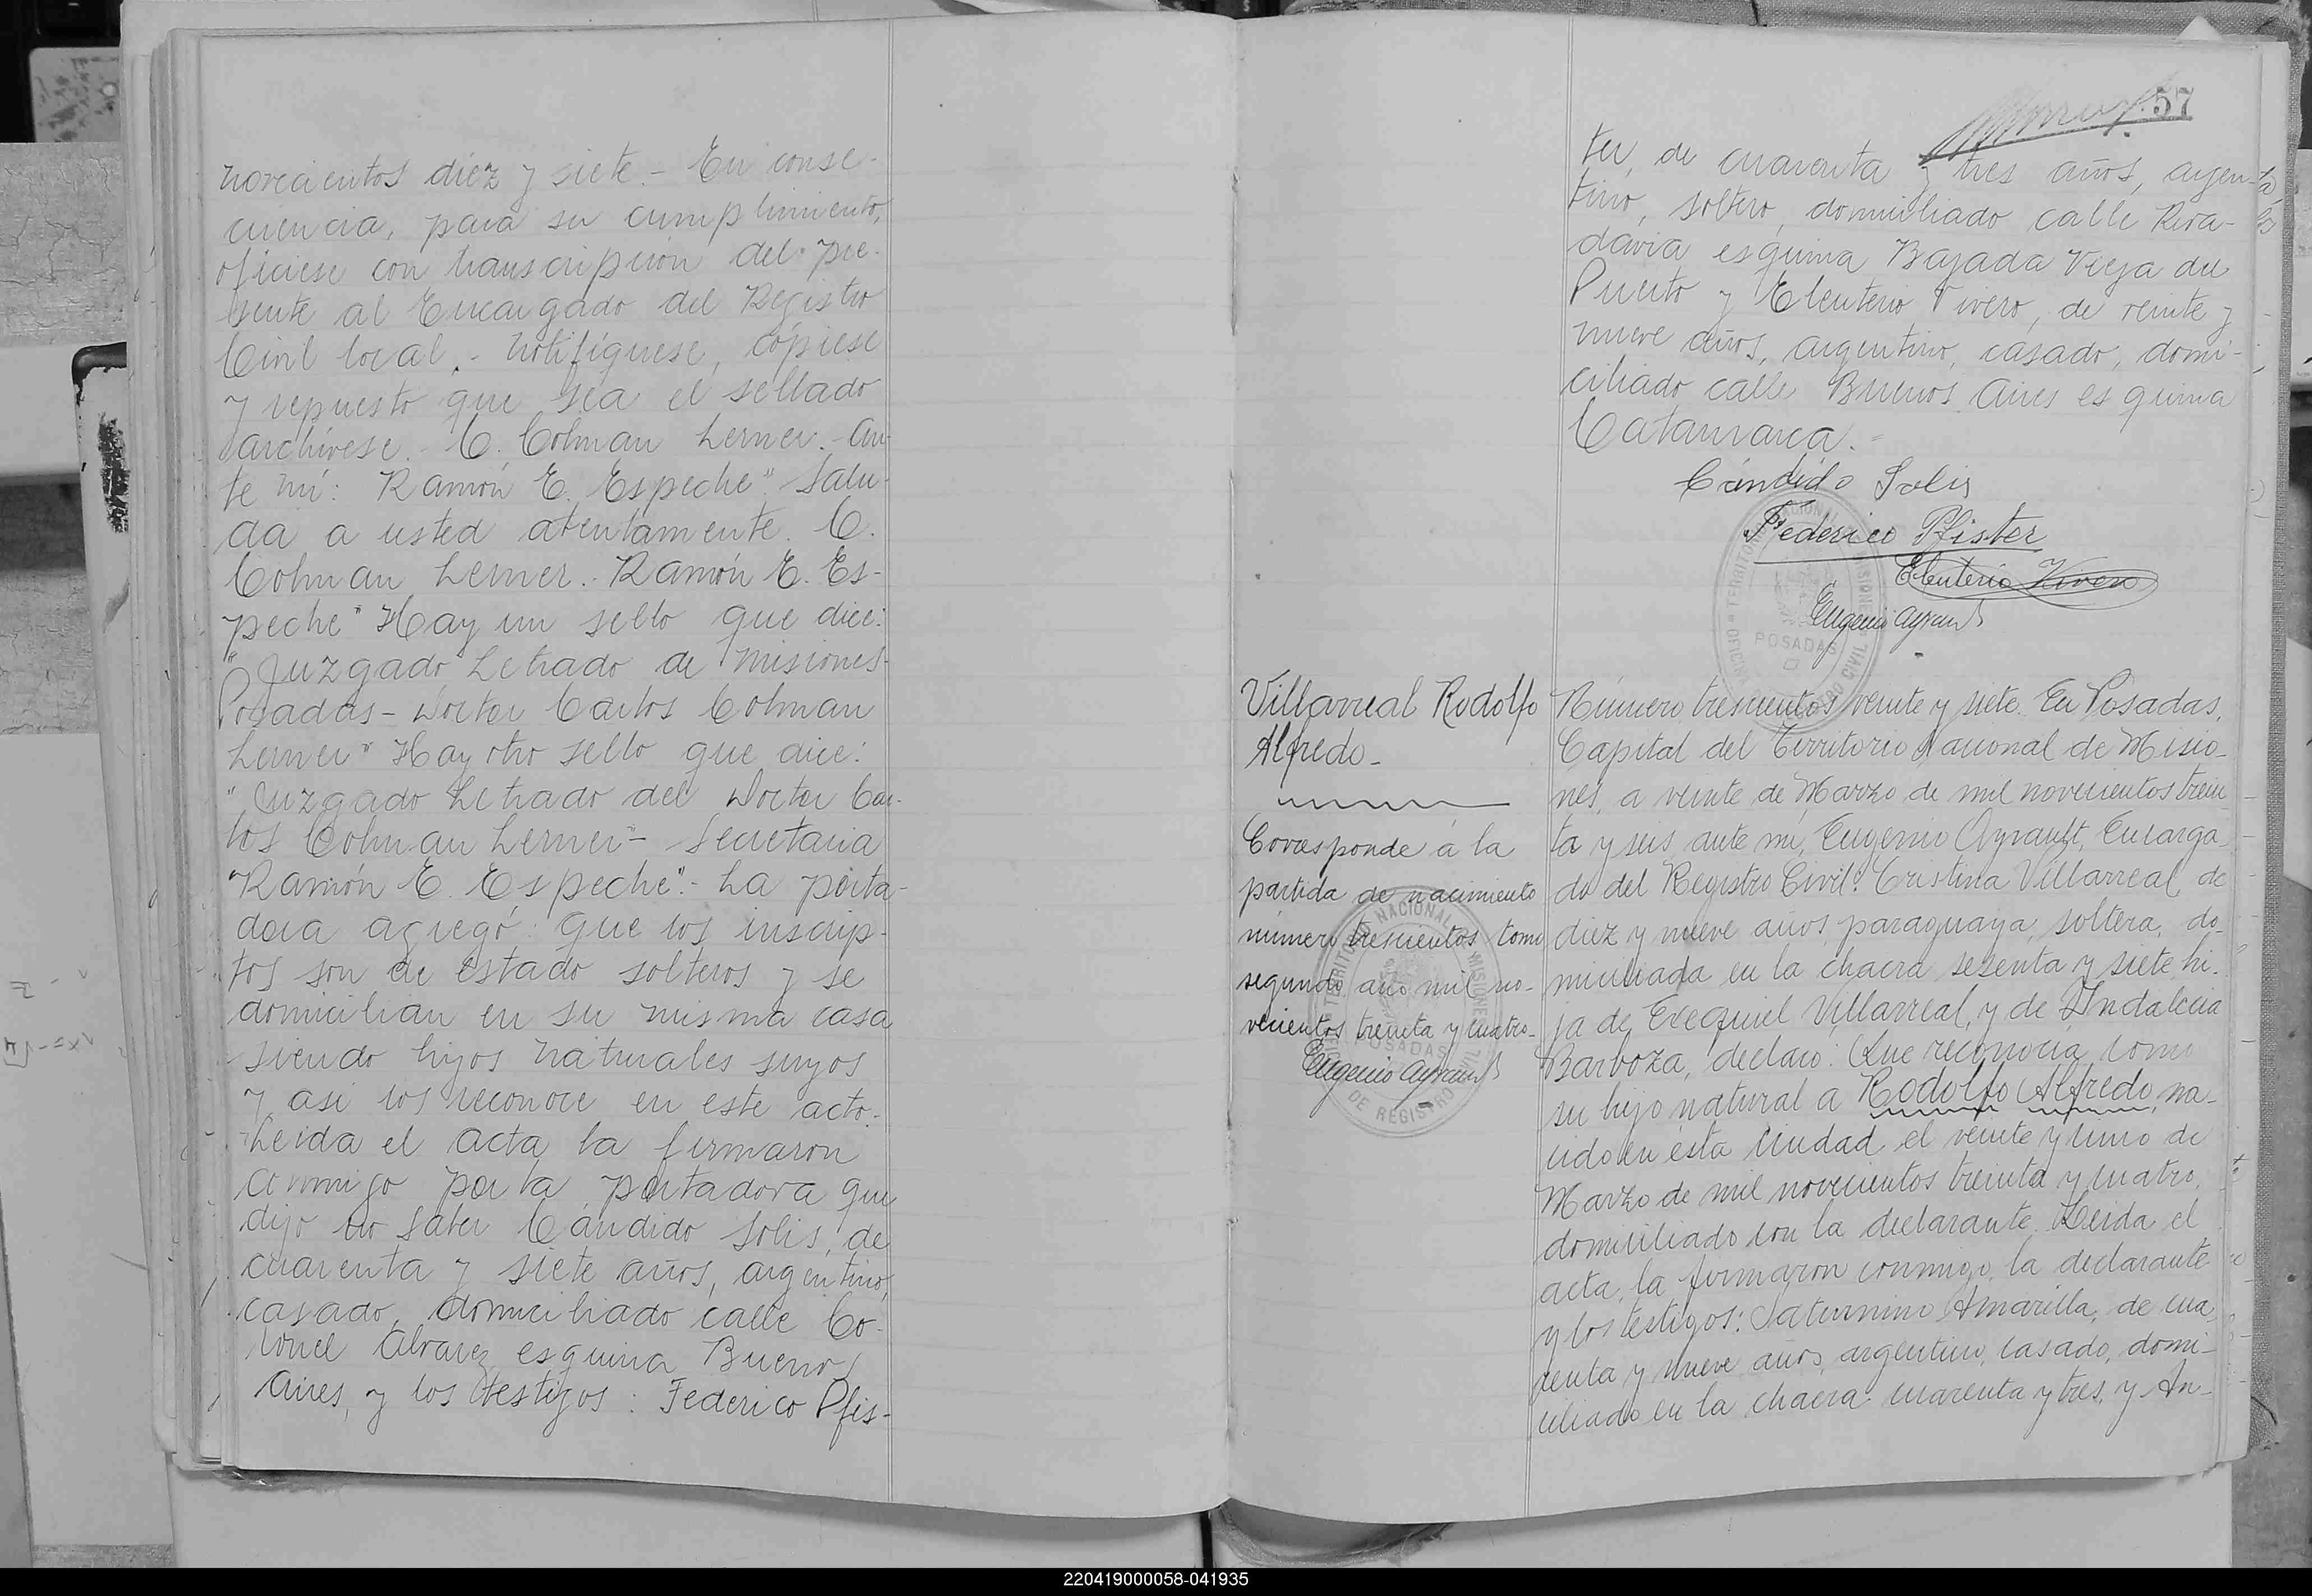 novecientos diez y siete.- En conse-
cuencia, para su cumplimiento,
ofíciese con transcripción del pre-
sente al Encargado del Registro
Civil local.- Notifíquese, cópiese
y repuesto que sea el sellado
archívese.- C. Colman Lerner.- An-
te mí: Ramón E. Espeche". Salu-
da a usted atentamente. C.
Colman Lerner.- Ramón E. Es-
peche" Hay un sello que dice:
"Juzgado Letrado de Misiones-
Posadas- Doctor Carlos Colman
Lerner" Hay otro sello que dice:
"Juzgado Letrado del Doctor Car-
los Colman Lerner"- Secretaria
"Ramón E. Espeche".- La porta-
dora agregó: que los inscrip-
tos son de estado solteros y se
domicilian en su misma casa
siendo hijos naturales suyos
y asi los reconoce en este acto.-
Leida el acta la firmaron
conmigo por la portadora que
dijo no saber Cándido Solis, de
cuarenta y siete años, argentino,
casado, domiciliado calle Co-
ronel Alvarez esquina Buenos
Aires, y los testigos: Federico Pfis-
57
ter, de cuarenta y tres años, argen-
tino, soltero, domiciliado calle Riva-
davia esquina Bajada Vieja del
Puerto y Eleuterio Vivero, de veinte y
nueve años, argentino, casado, domi-
ciliado calle Buenos Aires esquina
Catamarca.-
Cándido Solis
Federico Pfister
Eleuterio Vivero
Eugenio Ayrault
POSADAS
Villarreal Rodolfo
Alfredo-
Corresponde á la
partida de nacimiento
número trescientos tomo
segundo año mil no-
vecientos treinta y cuatro-
Eugenio Ayrault
POSADAS
DE REGISTRO CIVIL
Número trescientos veinte y siete. En Posadas,
Capital del Territorio Nacional de Misio-
nes, a veinte de Marzo de mil novecientos trein-
ta y seis, ante mí, Eugenio Ayrault, Encarga-
do del Registro Civil: Cristina Villarreal, de
diez y nueve años, paraguaya, soltera, do-
miciliada en la chacra sesenta y siete hi-
ja de Exequiel Villarreal, y de Indalecia
Barboza, declaró: Que reconocía como
su hijo natural a Rodolfo Alfredo, na-
cido en esta Ciudad el veinte y uno de
Marzo de mil novecientos treinta y cuatro,
domiciliado con la declarante. Leida el
acta, la firmaron conmigo, la declarante
y los testigos: Saturnino Amarilla, de cua-
renta y nueve años, argentino, casado, domi-
ciliado en la chacra cuarenta y tres, y An-
220419000058-041935